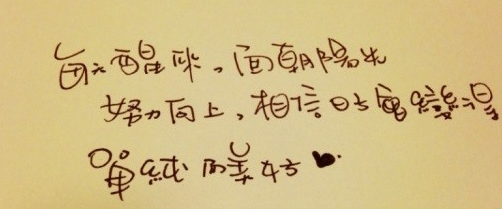 每天醒来，面朝陽光
努力向上，相信日子會變得
單純而美好